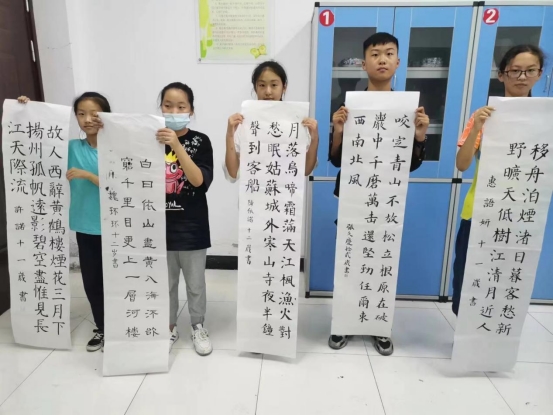 故人西辭黃鶴樓煙花三月下
揚州孤帆遠影碧空盡惟見長
江天際流
許諾十一歲書
白日依山盡黃入海流欲
窮千里目更上一層河樓
十二岁書
月落烏啼霜滿天江楓漁火對
愁眠姑蘇城外寒山寺夜半鍾
聲到客船
十二歲書
咬定青山不放松立根原在破
巖中千磨萬击還堅劲任爾東
西南北風
移舟泊煙渚日暮客愁新
野曠天低樹江清月近人
惠語妍十一歲書
1
2